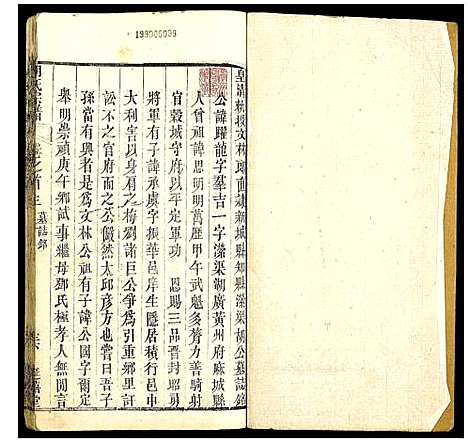 199000009
皇清勅授文林郎直隸新城縣知縣濛渠胡公墓誌銘
公諱躍龍字羣吉一字濛渠湖廣黃州府麻城縣
人曾祖諱思明明萬歷甲午武魁多膂力善騎射
官穀城守府以平定軍功 恩賜三品晋封昭勇
將軍有子諱承虞字振華邑庠生隱居積行邑中
大利害以身肩之梅劉諸巨公爭為引重鄉里訐
訟不之官府而之公儼然太邱彥方也嘗日吾子
孫當有興者是為文林公祖有子諱公國字爾定
舉明崇禎庚午鄉試事繼母鄧氏極孝人無間言
胡氏宗譜
卷之首三 墓誌銘